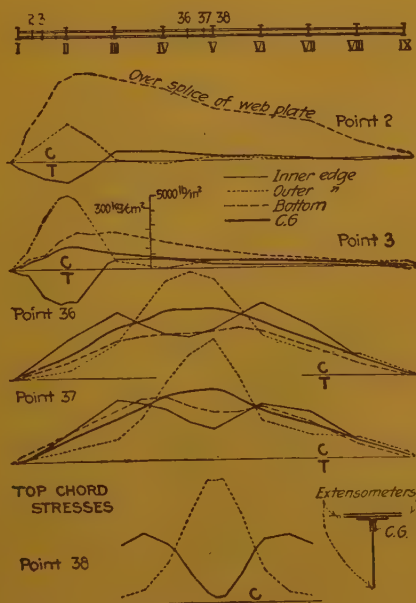 36 37 38
2 3
I II III IV V VI VII VIII IX
Over splice of web plate
Point 2
C
T
Inner edge
Outer "
Bottom
C.G
5000 lb/in²
300 kg/cm²
Point 3
C
T
Point 36
C
T
Point 37
C
T
TOP CHORD
STRESSES
Extensometers
C.G.
Point 38
C